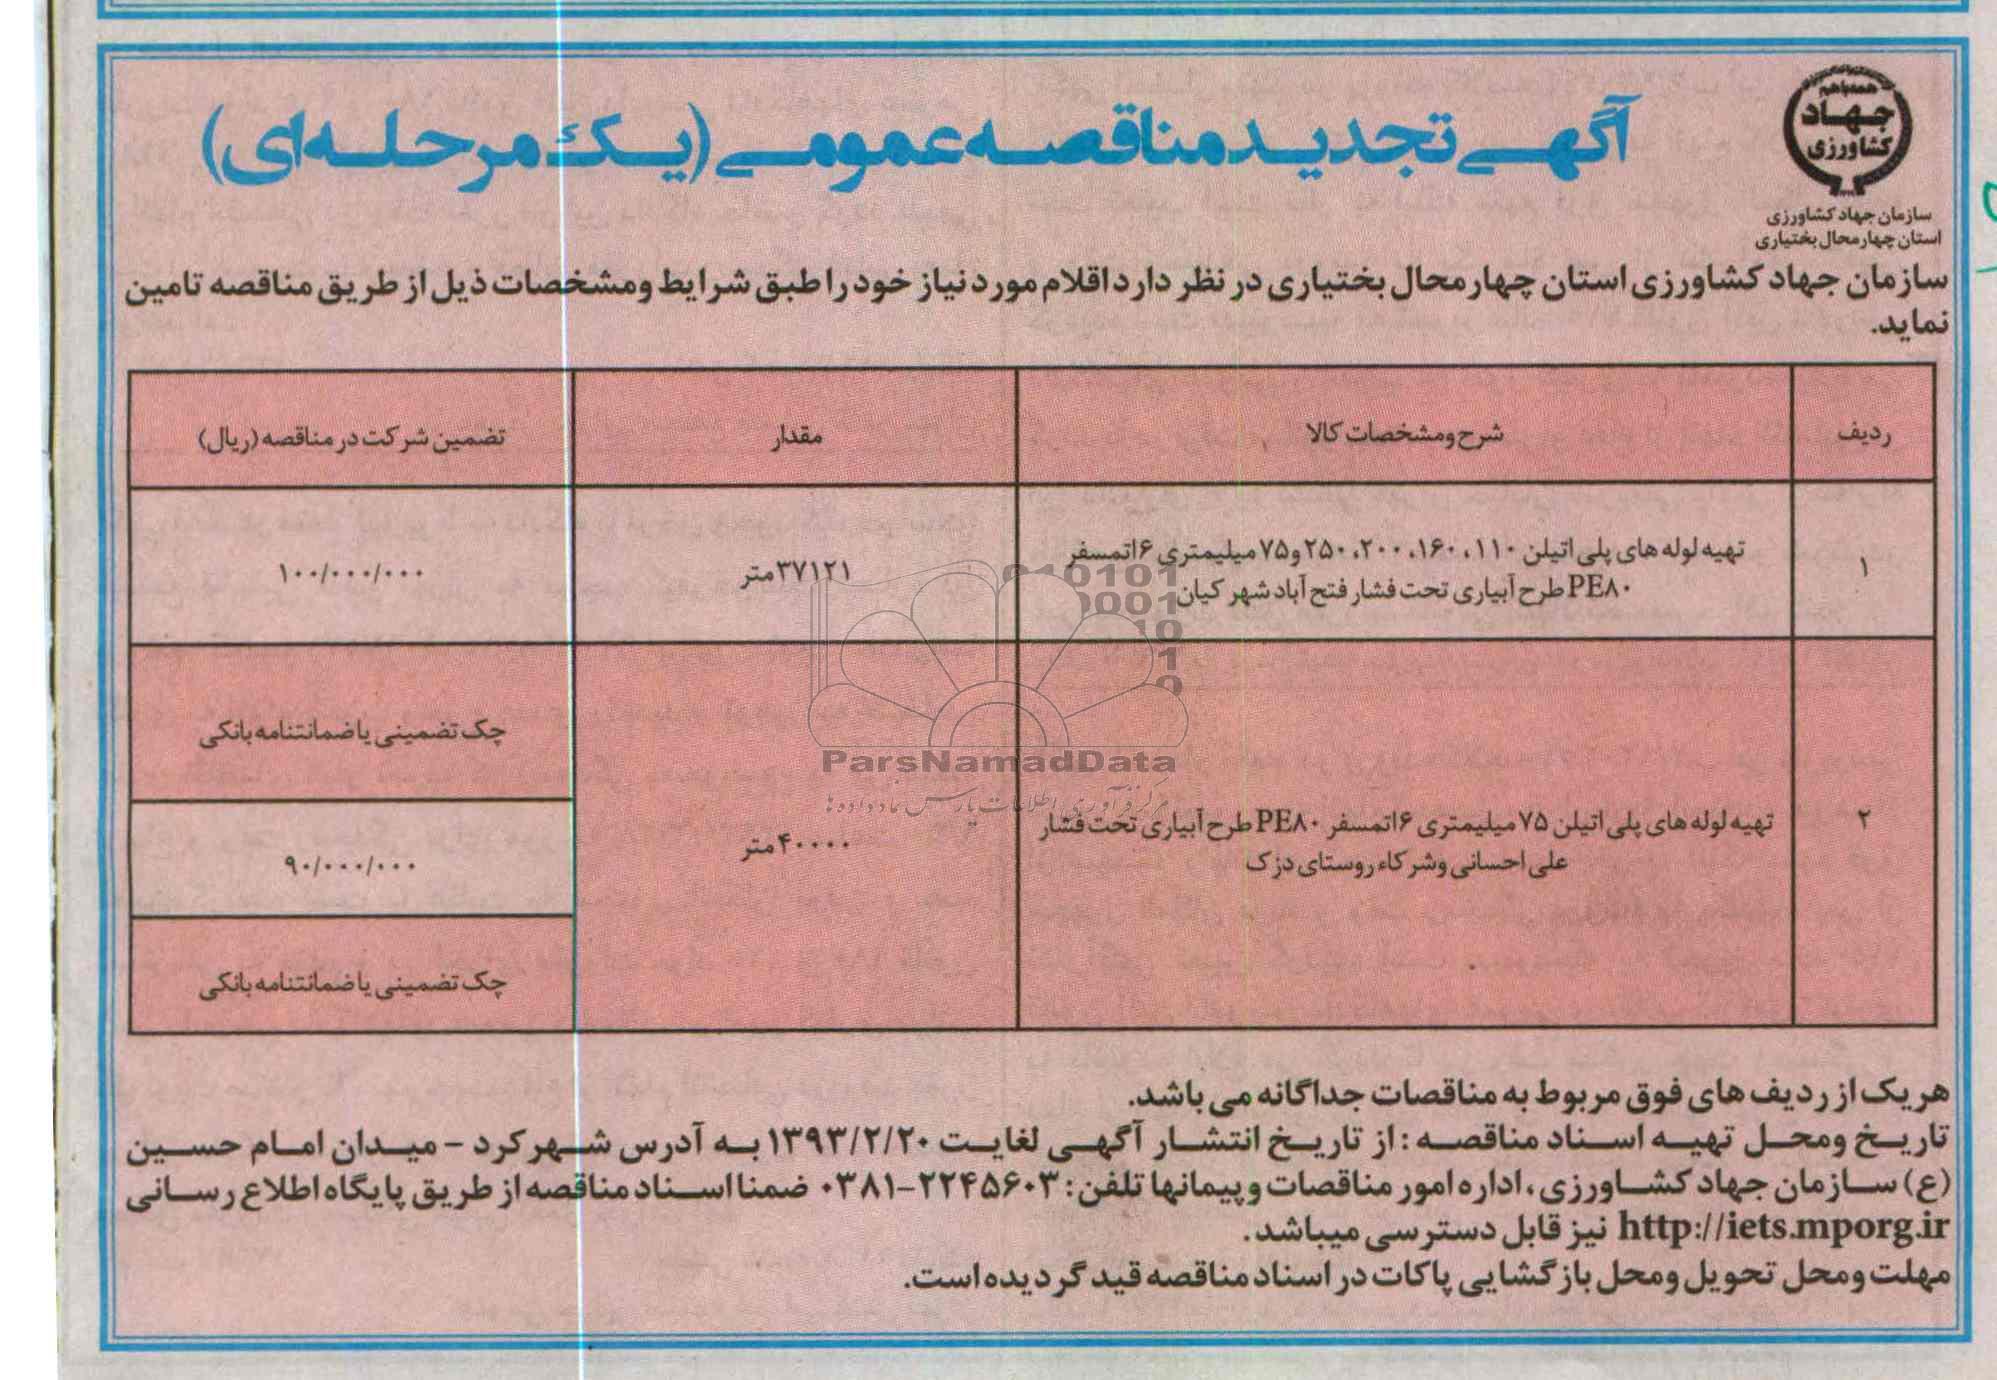 همه با هم
جهاد
کشاورزی
سازمان جهاد کشاورزی
استان چهارمحال بختیاری
آگهی تجدید مناقصه عمومی (یک مرحله‌ای)
سازمان جهاد کشاورزی استان چهارمحال بختیاری در نظر دارد اقلام مورد نیاز خود را طبق شرایط ومشخصات ذیل از طریق مناقصه تامین
نماید.
ردیف	شرح ومشخصات کالا	مقدار	تضمین شرکت در مناقصه (ریال)
۱	تهیه لوله های پلی اتیلن ۱۱۰، ۱۶۰، ۲۰۰، ۲۵۰ و۷۵ میلیمتری ۶اتمسفر
PE۸۰ طرح آبیاری تحت فشار فتح آباد شهر کیان	۳۷۱۲۱متر	۱۰۰/۰۰۰/۰۰۰
چک تضمینی یا ضمانتنامه بانکی
۲	تهیه لوله های پلی اتیلن ۷۵ میلیمتری ۶اتمسفر PE۸۰ طرح آبیاری تحت فشار
علی احسانی وشرکاء روستای دزک	۴۰۰۰۰متر	۹۰/۰۰۰/۰۰۰
چک تضمینی یا ضمانتنامه بانکی
010101
0001
10
1
0
ParsNamadData
مرکز فرآوری اطلاعات پارس نماد داده ها
هریک از ردیف های فوق مربوط به مناقصات جداگانه می باشد.
تاریخ ومحل تهیه اسناد مناقصه : از تاریخ انتشار آگهی لغایت ۱۳۹۳/۲/۲۰ به آدرس شهرکرد – میدان امام حسین
(ع) سازمان جهاد کشاورزی، اداره امور مناقصات وپیمانها تلفن: ۲۲۴۵۶۰۳-۰۳۸۱ ضمنا اسناد مناقصه از طریق پایگاه اطلاع رسانی
http://iets.mporg.ir نیز قابل دسترسی میباشد.
مهلت ومحل تحویل ومحل بازگشایی پاکات در اسناد مناقصه قید گردیده است.